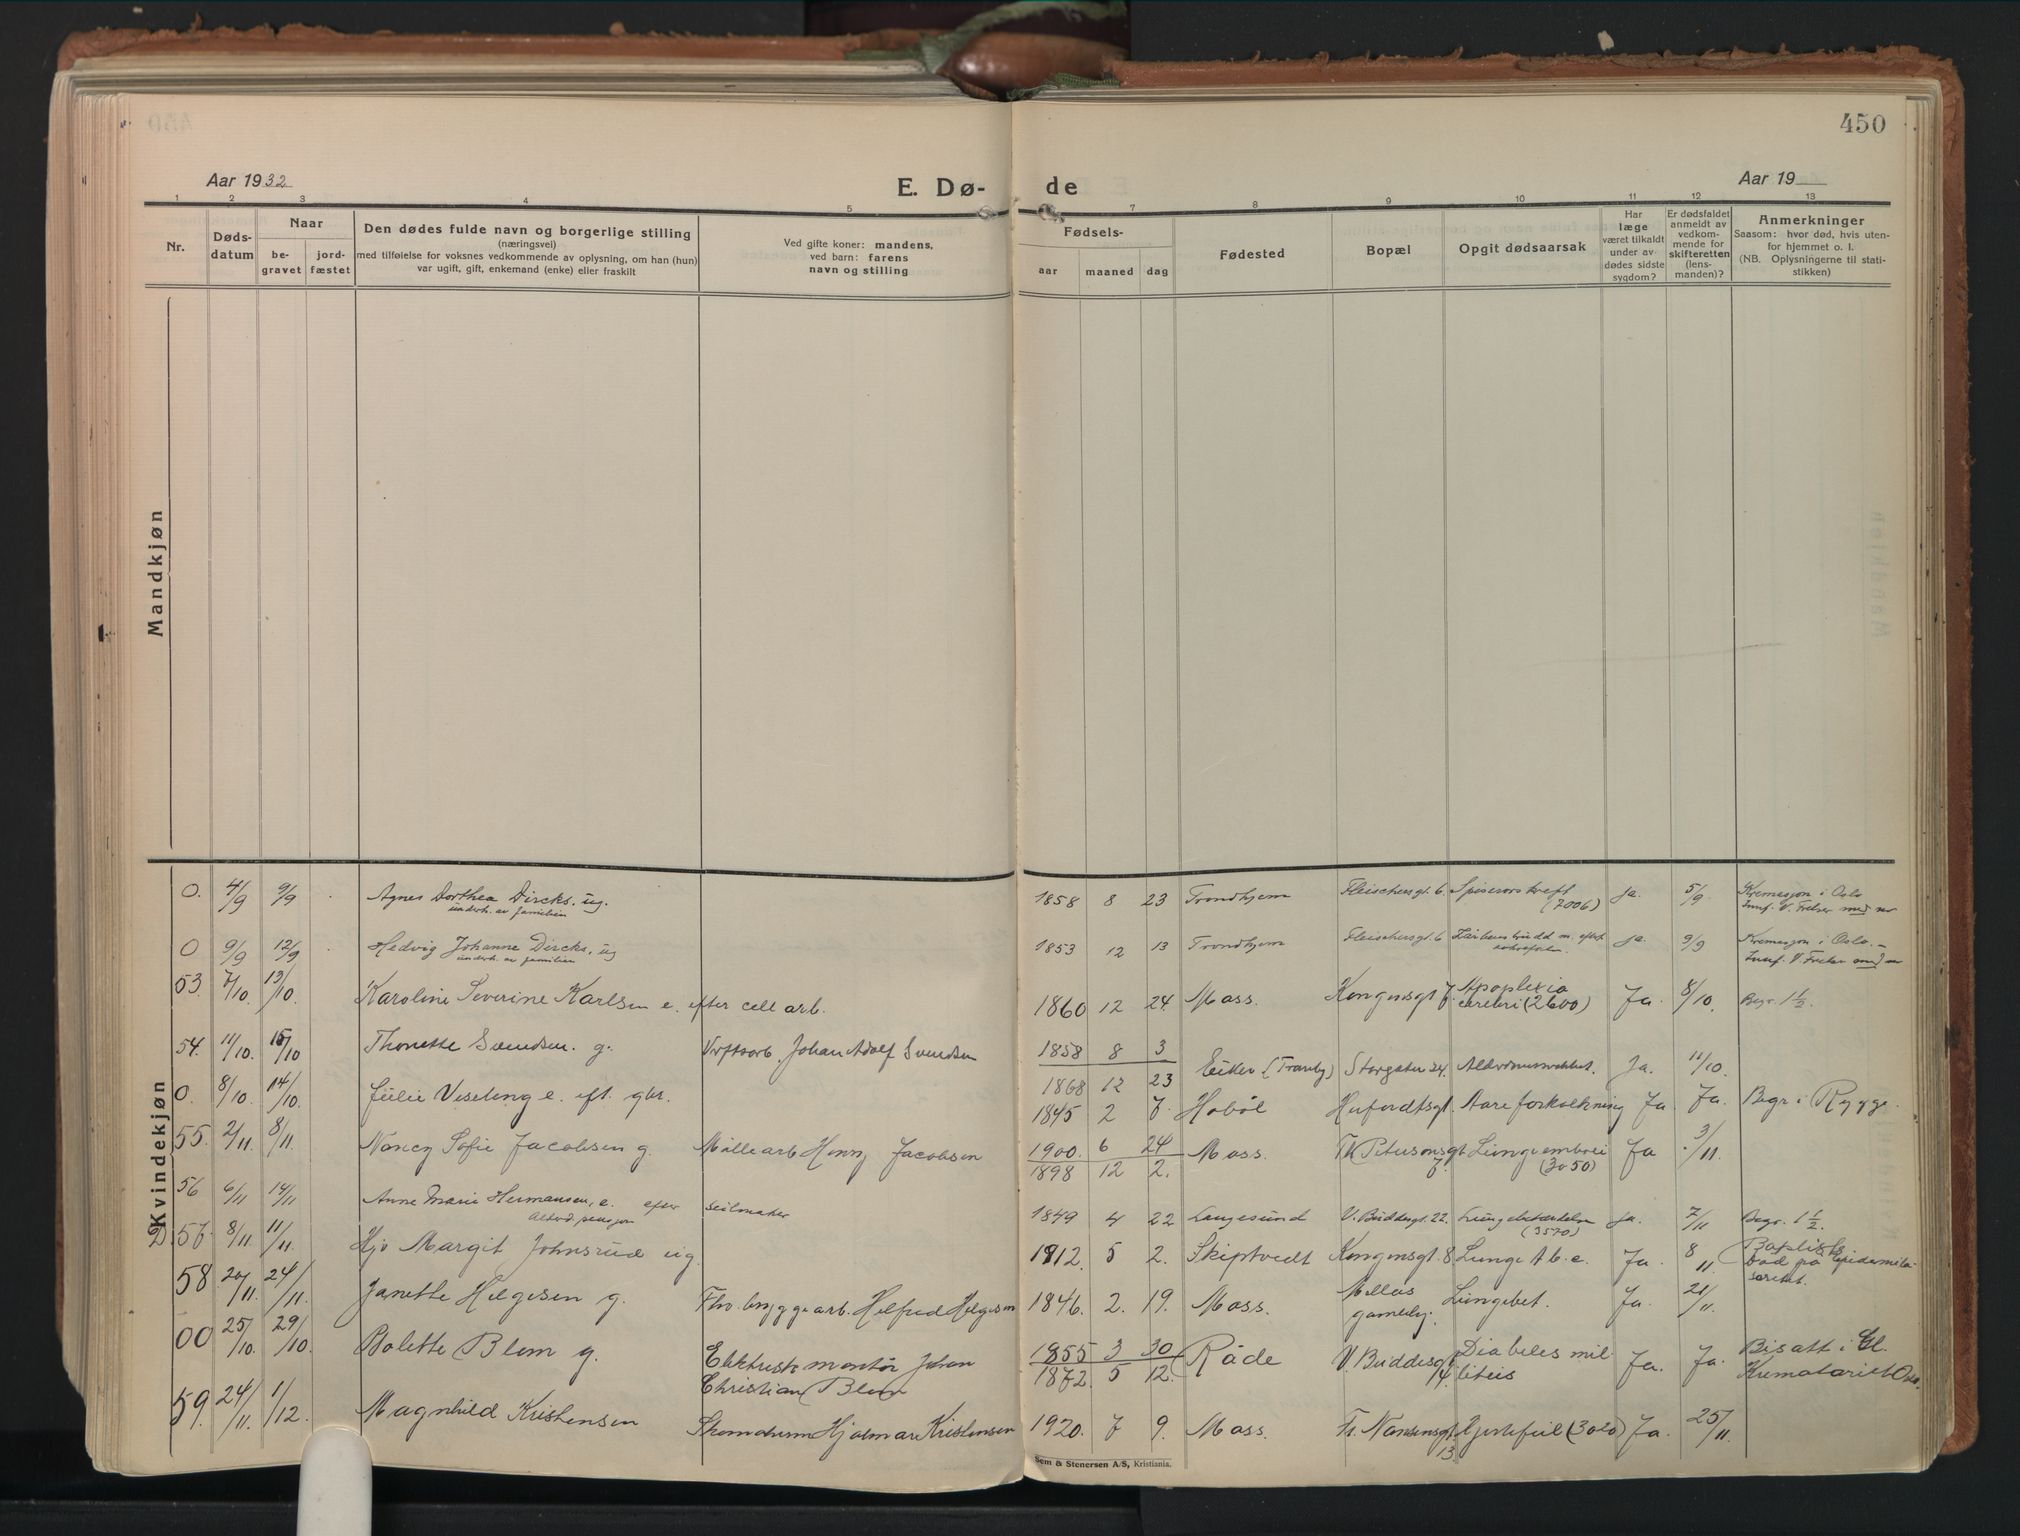 450
Aar 1932
E. Dø-
de
Aar 19
1 2 3 4 5 7 8 9 10 11 12 13
Nr.
Døds-
datum
Naar
be-
gravet
jord-
fæstet
Den dødes fulde navn og borgerlige stilling
(næringsvei)
med tilføielse for voksnes vedkommende av oplysning, om han (hun)
var ugift, gift, enkemand (enke) eller fraskilt
Ved gifte koner: mandens,
ved barn: farens
navn og stilling
Fødsels-
aar maaned dag
Fødested
Bopæl
Opgit dødsaarsak
Har
læge
været tilkaldt
under av-
dødes sidste
sygdom?
Er dødsfaldet
anmeldt av
vedkom-
mende for
skifteretten
(lens-
manden)?
Anmerkninger
Saasom: hvor død, hvis uten-
for hjemmet o. l.
(NB. Oplysningerne til stati-
stikken)
Mandkjøn
Kvindekjøn
0. 4/9 9/9 Agnes Dorthea Dircks. ug. 1858 8 23 Trondhjem Fleischersgt. 6. Spiserørskreft Ja. 5/9. Kremasjon i Oslo
underh. av familien (7006)
0 9/9 12/9 Hedvig Johanne Dircks, ug 1853 12 13 Trondhjem Fleischersgt. 6 Ja. 9/9 Kremasjon i Oslo.
underh. av familien
53. 7/10. 13/10. Karoline Severine Karlsen e. efter cell arb. 1860 12 24. Moss. Kongensgt 7. Apoplexia Ja. 8/10. Begr. 1 1/2.
cerebri (2600)
54. 11/10. 15/10 Thonette Svendsen. g. Verftsarb. Johan Adolf Svendsen 1858 8 3 Eiker (Tranby) Storgaten 24. Alderdomssvakhet. Ja. 11/10.
1868 12 23
0. 8/10. 14/10. Julie Veseteng e. eft. gbr. 1845 2 7. Hobøl Herfordtsgt. Aareforkalkning Ja. Ja. Begr i Rygge.
55. 2/11 8/11. Nancy Sofie Jacobsen g. Møllearb Henry Jacobsen 1900. 6 24 Moss. Th Petersonsgt Lungeemboli Ja 3/11.
1898 12 2. 7. (3050)
56 6/11 14/11 Anne Marie Hermansen, e. efter seilmaker 1849 4 22 Langesund V. Buddesgt. 22. Lungebetændelse Ja. 7/11 Begr. 1 1/2.
Alderd. pensjon (3570)
D. 57. 8/11. 11/11. Hjo Margit Johnsrud ug. 1912. 5 2. Skiptvedt Kongensgt. 8 Lunge tb.c. Ja. 8/11 Baptist
Død på epidemila-
saretet.
58. 20/11. 24/11. Janette Helgesen g. Fhv. bryggearb. Helfred Helgesen 1846. 2. 19. Moss. Melløs Lungebet. Ja. 21/11.
gamlehj.
00 25/10. 29/10. Bolette Blom g. Elektrisk montør Johan 1855 3 30 Råde V. Buddesgt Diabetes mel- Ja. Ja. Bisatt i Gl.
Christian Blom 1872. 5 12. 14. litus Krematoriet Oslo.
59. 24/11. 1/12. Magnhild Kristensen Skomakerm Hjalmar Kristensen 1920. 7 9. Moss. Fr. Nansensgt. Hjertefeil (3020) Ja. 25/11.
13.
Sem & Stenersen A/S, Kristiania.